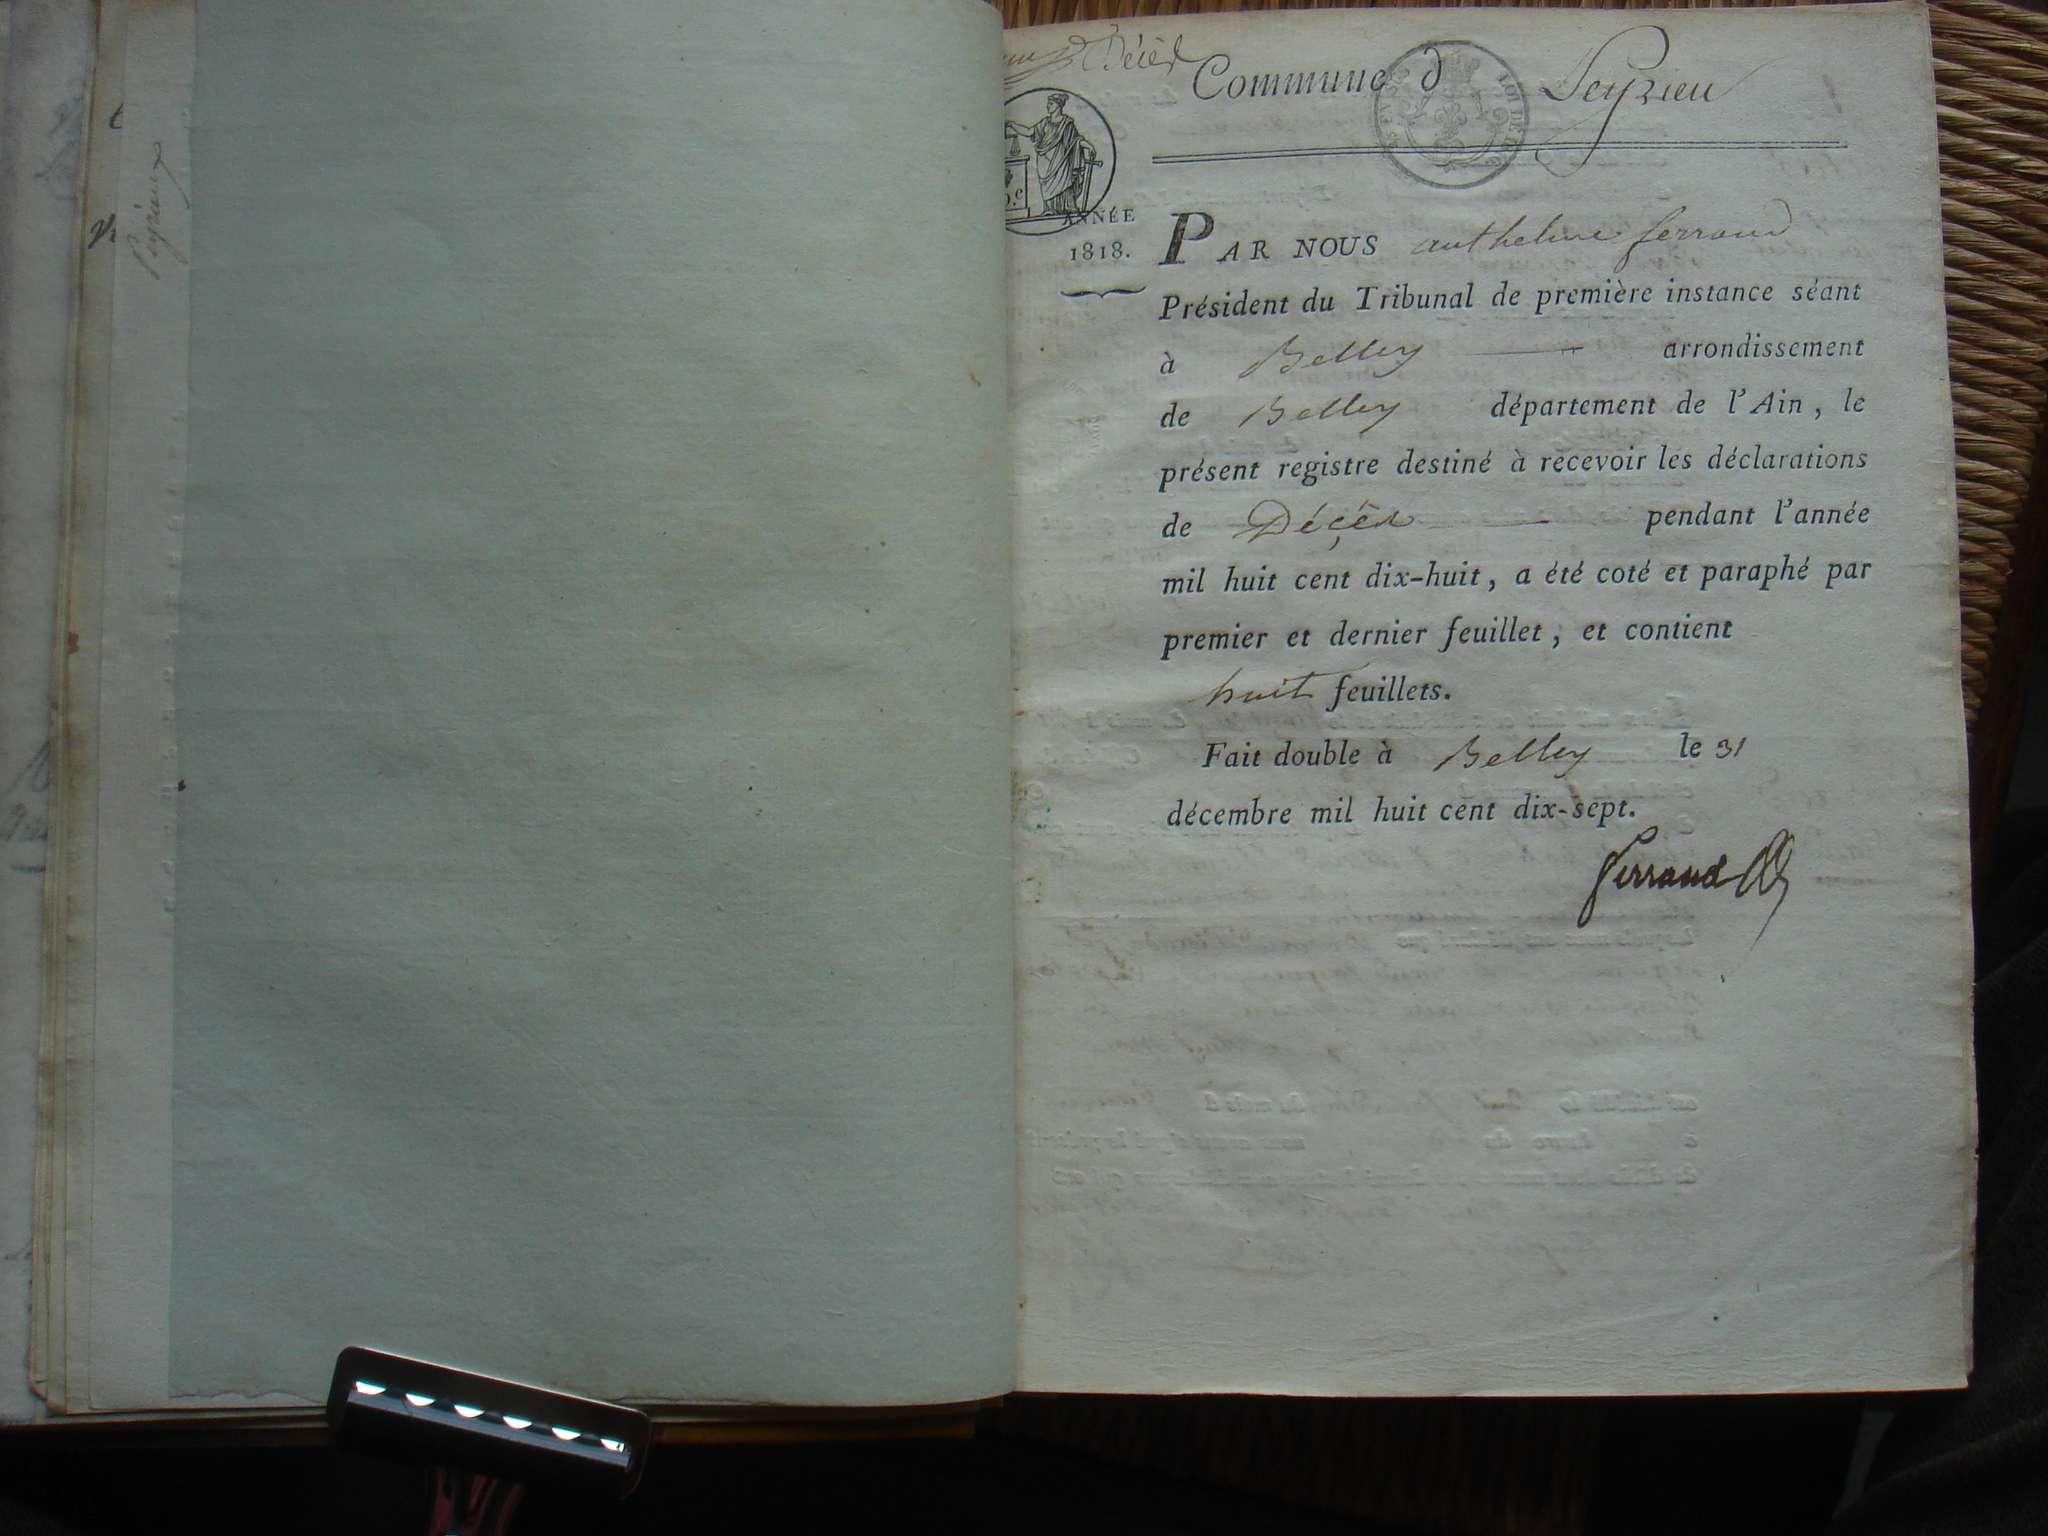 Peyrieux
Décès
Commune d Peyrieu
ANNÉE
1818.
PAR NOUS anthelme ferrand
Président du Tribunal de première instance séant
à Belley arrondissement
de Belley département de l'Ain, le
présent registre destiné à recevoir les déclarations
de Décès pendant l'année
mil huit cent dix-huit, a été coté et paraphé par
premier et dernier feuillet, et contient
huit feuillets.
Fait double à Belley le 31
décembre mil huit cent dix-sept.
ferrand